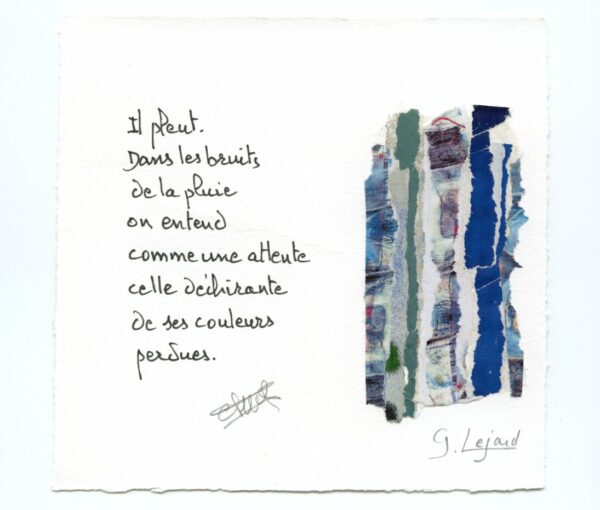 Il pleut.
Dans les bruits
de la pluie
on entend
comme une attente
celle déchirante
de ses couleurs
perdues.
G. Lejard